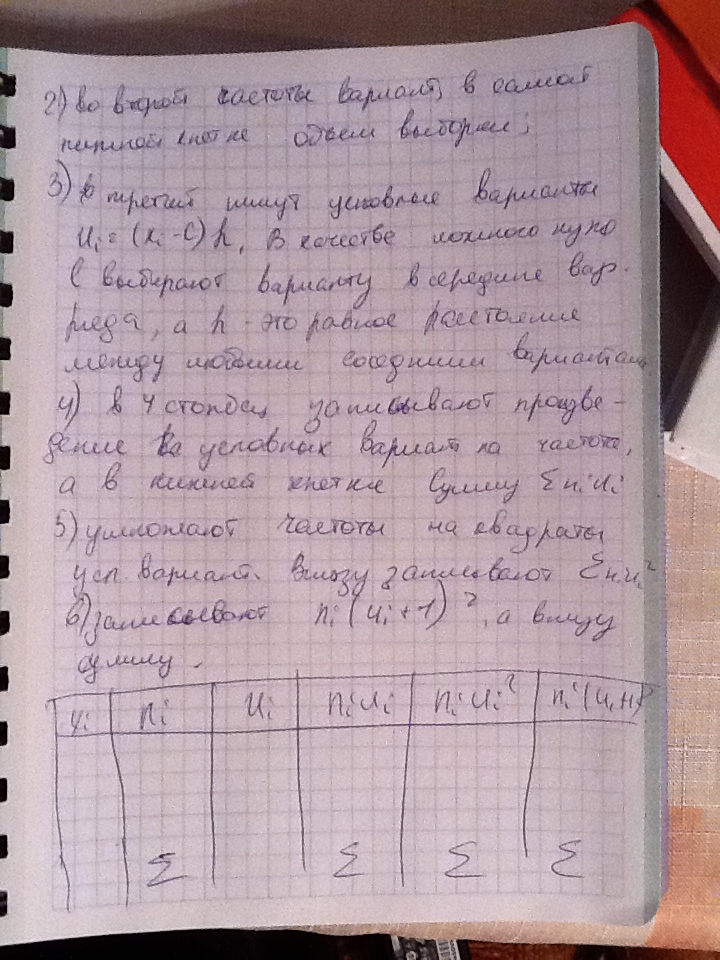 2) во второй частоты вариант, в самой
нижней клетке объем выборки;
3) в третьей пишут условные варианты
Ui = (xi - C)/h, в качестве ложного нуля
C выбирают варианту в середине вар.
ряда, а h - это равное расстояние
между любыми соседними вариантами
4) в 4 столбец записывают произве-
дение условных вариант на частоты,
а в нижней клетке сумму Σ niui
5) умножают частоты на квадраты
усл. вариант. Внизу записывают Σniui²
6) записывают ni(ui+1)², а внизу
сумму.
xi | ni | Ui | niui | niui² | ni(ui+1)²
Σ Σ Σ Σ